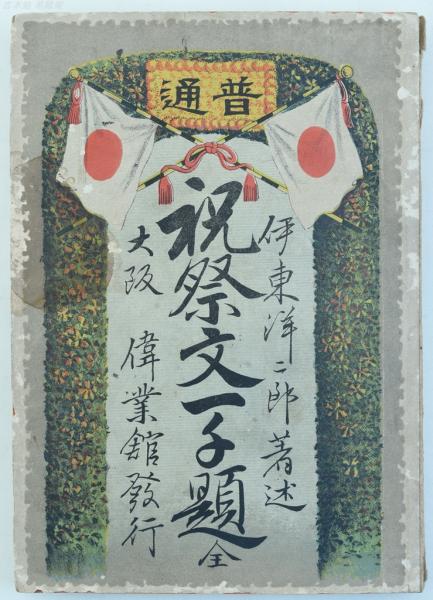 通普
伊東洋二郎著述
祝祭文一千題全
大阪 偉業館發行